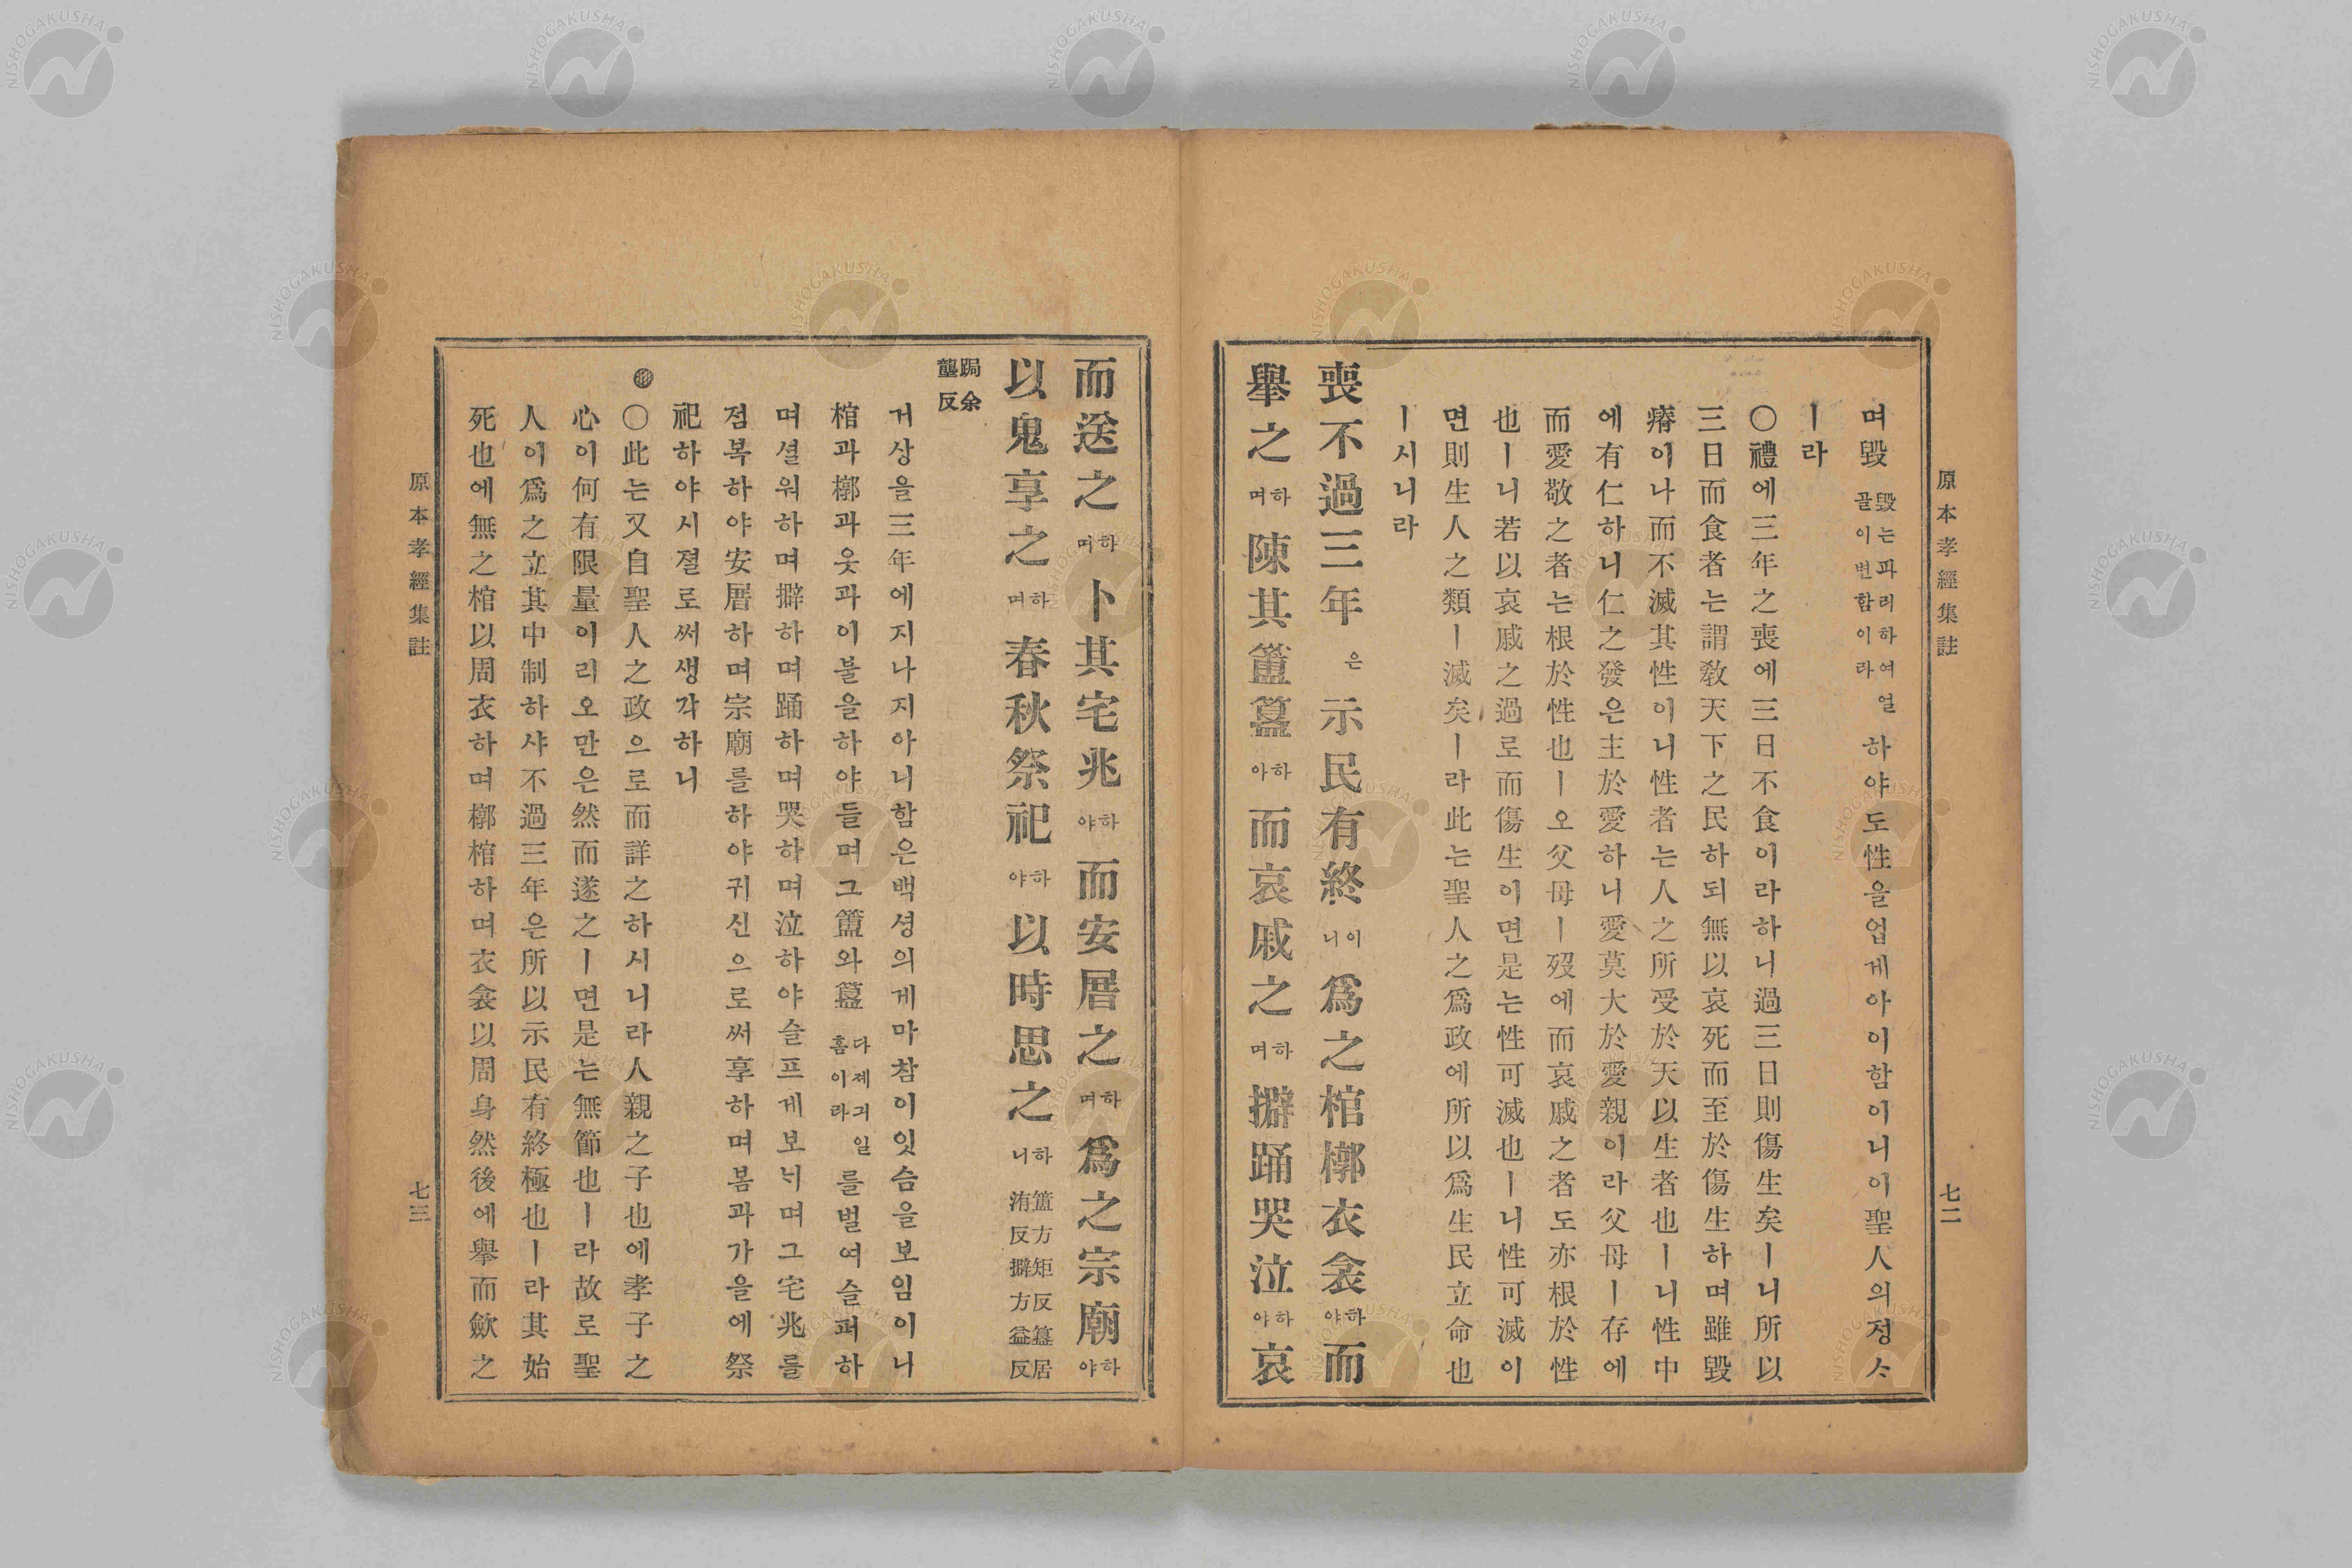 原本孝經集註
七二
며毁毁는파리하여열골이변함이라하야도性을업게아이함이니이聖人의졍ᄉ
ㅣ라
〇禮에三年之喪에三日不食이라하니過三日則傷生矣ㅣ니所以
三日而食者는謂敎天下之民하되無以哀死而至於傷生하며雖毁
瘠이나而不滅其性이니性者는人之所受於天以生者也ㅣ니性中
에有仁하니仁之發은主於愛하니愛莫大於愛親이라父母ㅣ存에
而愛敬之者는根於性也ㅣ오父母ㅣ歿에而哀戚之者도亦根於性
也ㅣ니若以哀戚之過로而傷生이면是는性可滅也ㅣ니性可滅이
면則生人之類ㅣ滅矣ㅣ라此는聖人之爲政에所以爲生民立命也
ㅣ시니라
喪不過三年은示民有終이니爲之棺槨衣衾하야而
擧之하며陳其簠簋하아而哀戚之하며擗踊哭泣하야哀
而送之하며卜其宅兆하야而安厝之하며爲之宗廟하야
以鬼享之하며春秋祭祀하야以時思之하니簠方矩反簋居洧反擗方益反
跼余壟反
거상을三年에지나지아니함은백셩의게마참이잇슴을보임이니
棺과槨과옷과이불을하야들며그簠와簋다졔긔일홈이라를벌여슬퍼하
며셜워하며擗하며踊하며哭하며泣하야슬프게보ᄂᆡ며그宅兆를
점복하야安厝하며宗廟를하야귀신으로써享하며봄과가을에祭
祀하야시졀로써생각하니
〇此는又自聖人之政으로而詳之하시니라人親之子也에孝子之
心이何有限量이리오만은然而遂之ㅣ면是는無節也ㅣ라故로聖
人이爲之立其中制하샤不過三年은所以示民有終極也ㅣ라其始
死也에無之棺以周衣하며槨棺하며衣衾以周身然後에擧而斂之
原本孝經集註
七三